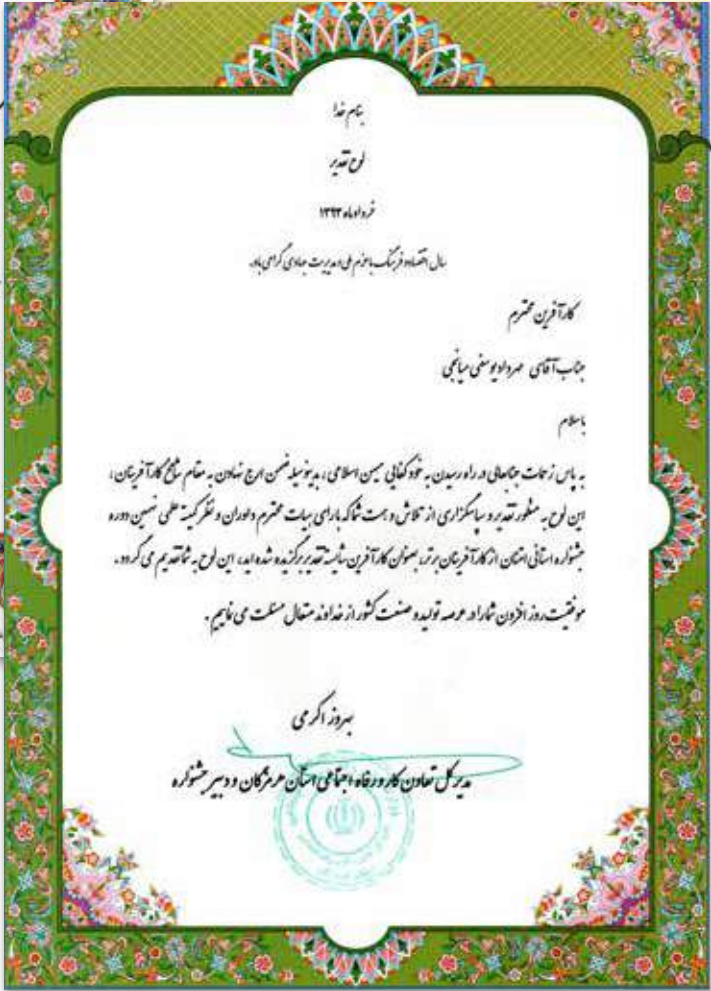 بنام خدا
لوح تقدیر
خرداد ماه ۱۳۹۳
سال اقتصاد و فرهنگ با عزم ملی و مدیریت جهادی گرامی باد.
کارآفرین محترم
جناب آقای مهرداد یوسفی میانجی
با سلام
به پاس زحمات جنابعالی در راه رسیدن به خودکفائی میهن اسلامی، بدینوسیله ضمن ارج نهادن به مقام شامخ کارآفرینان،
این لوح به منظور تقدیر و سپاسگزاری از تلاش و همت شما که با رای هیات محترم داوران و نظر کمیته علمی نهمین دوره
جشنواره استانی امتنان از کارآفرینان برتر، بعنوان کارآفرین شایسته تقدیر برگزیده شده اید، این لوح به شما تقدیم می گردد.
موفقیت روز افزون شما را در عرصه تولید و صنعت کشور از خداوند متعال مسئلت می نماییم.
بهروز اکرمی
مدیر کل تعاون کار و رفاه اجتماعی استان هرمزگان و دبیر جشنواره